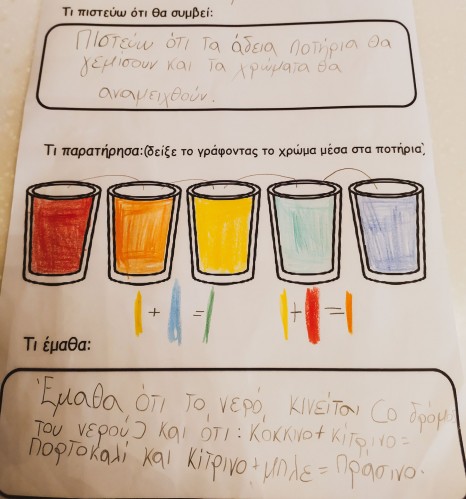 Τι πιστεύω ότι θα συμβεί:
Πιστεύω ότι τα άδεια ποτήρια θα
γεμίσουν και τα χρώματα θα
αναμειχθούν.
Τι παρατήρησα:(δείξε το γράφοντας το χρώμα μέσα στα ποτήρια),
+ =
+ =
Τι έμαθα:
Έμαθα ότι το νερό, κινείται (ο δρόμος
του νερού) και ότι: κόκκινο + κίτρινο =
πορτοκαλί και κίτρινο + μπλε = πράσινο.